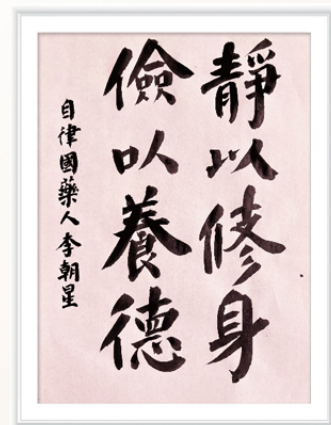 靜以修身
儉以養德
自律國藥人李朝星